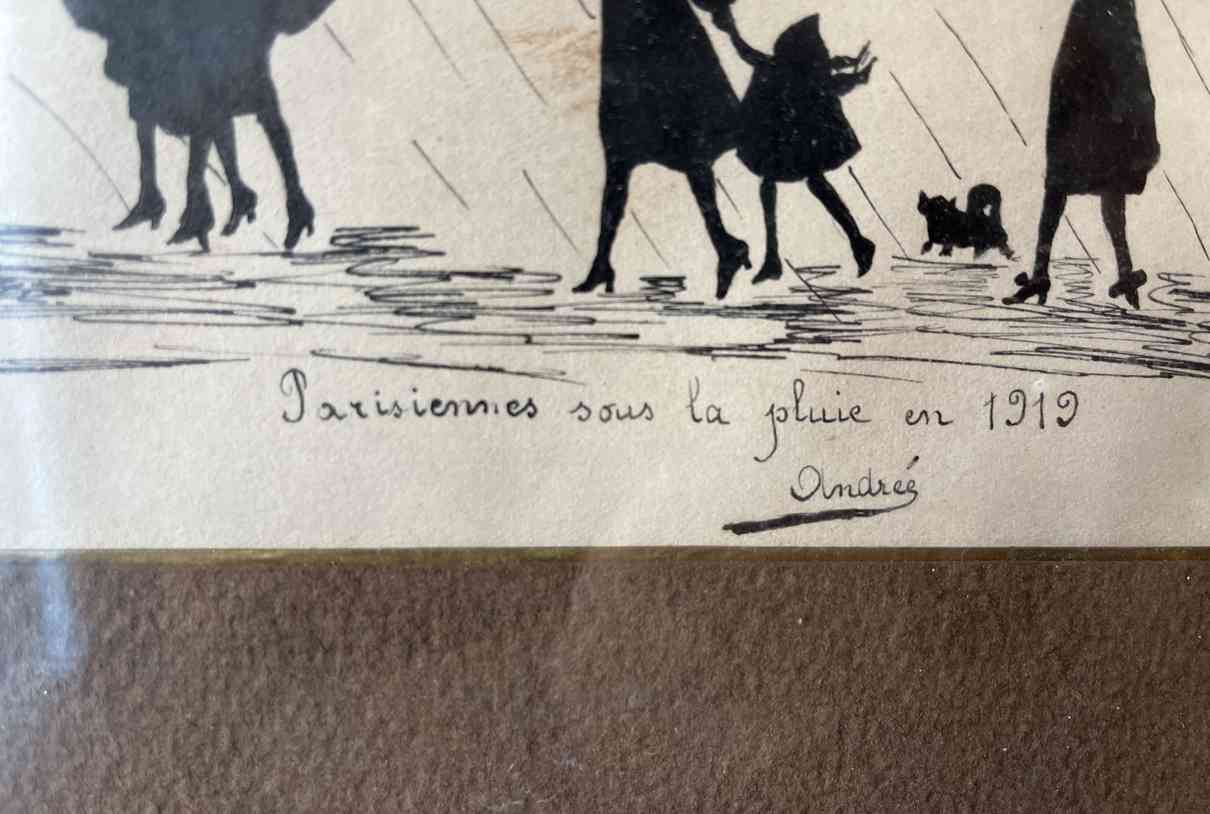 Parisiennes sous la pluie en 1919
Andrée